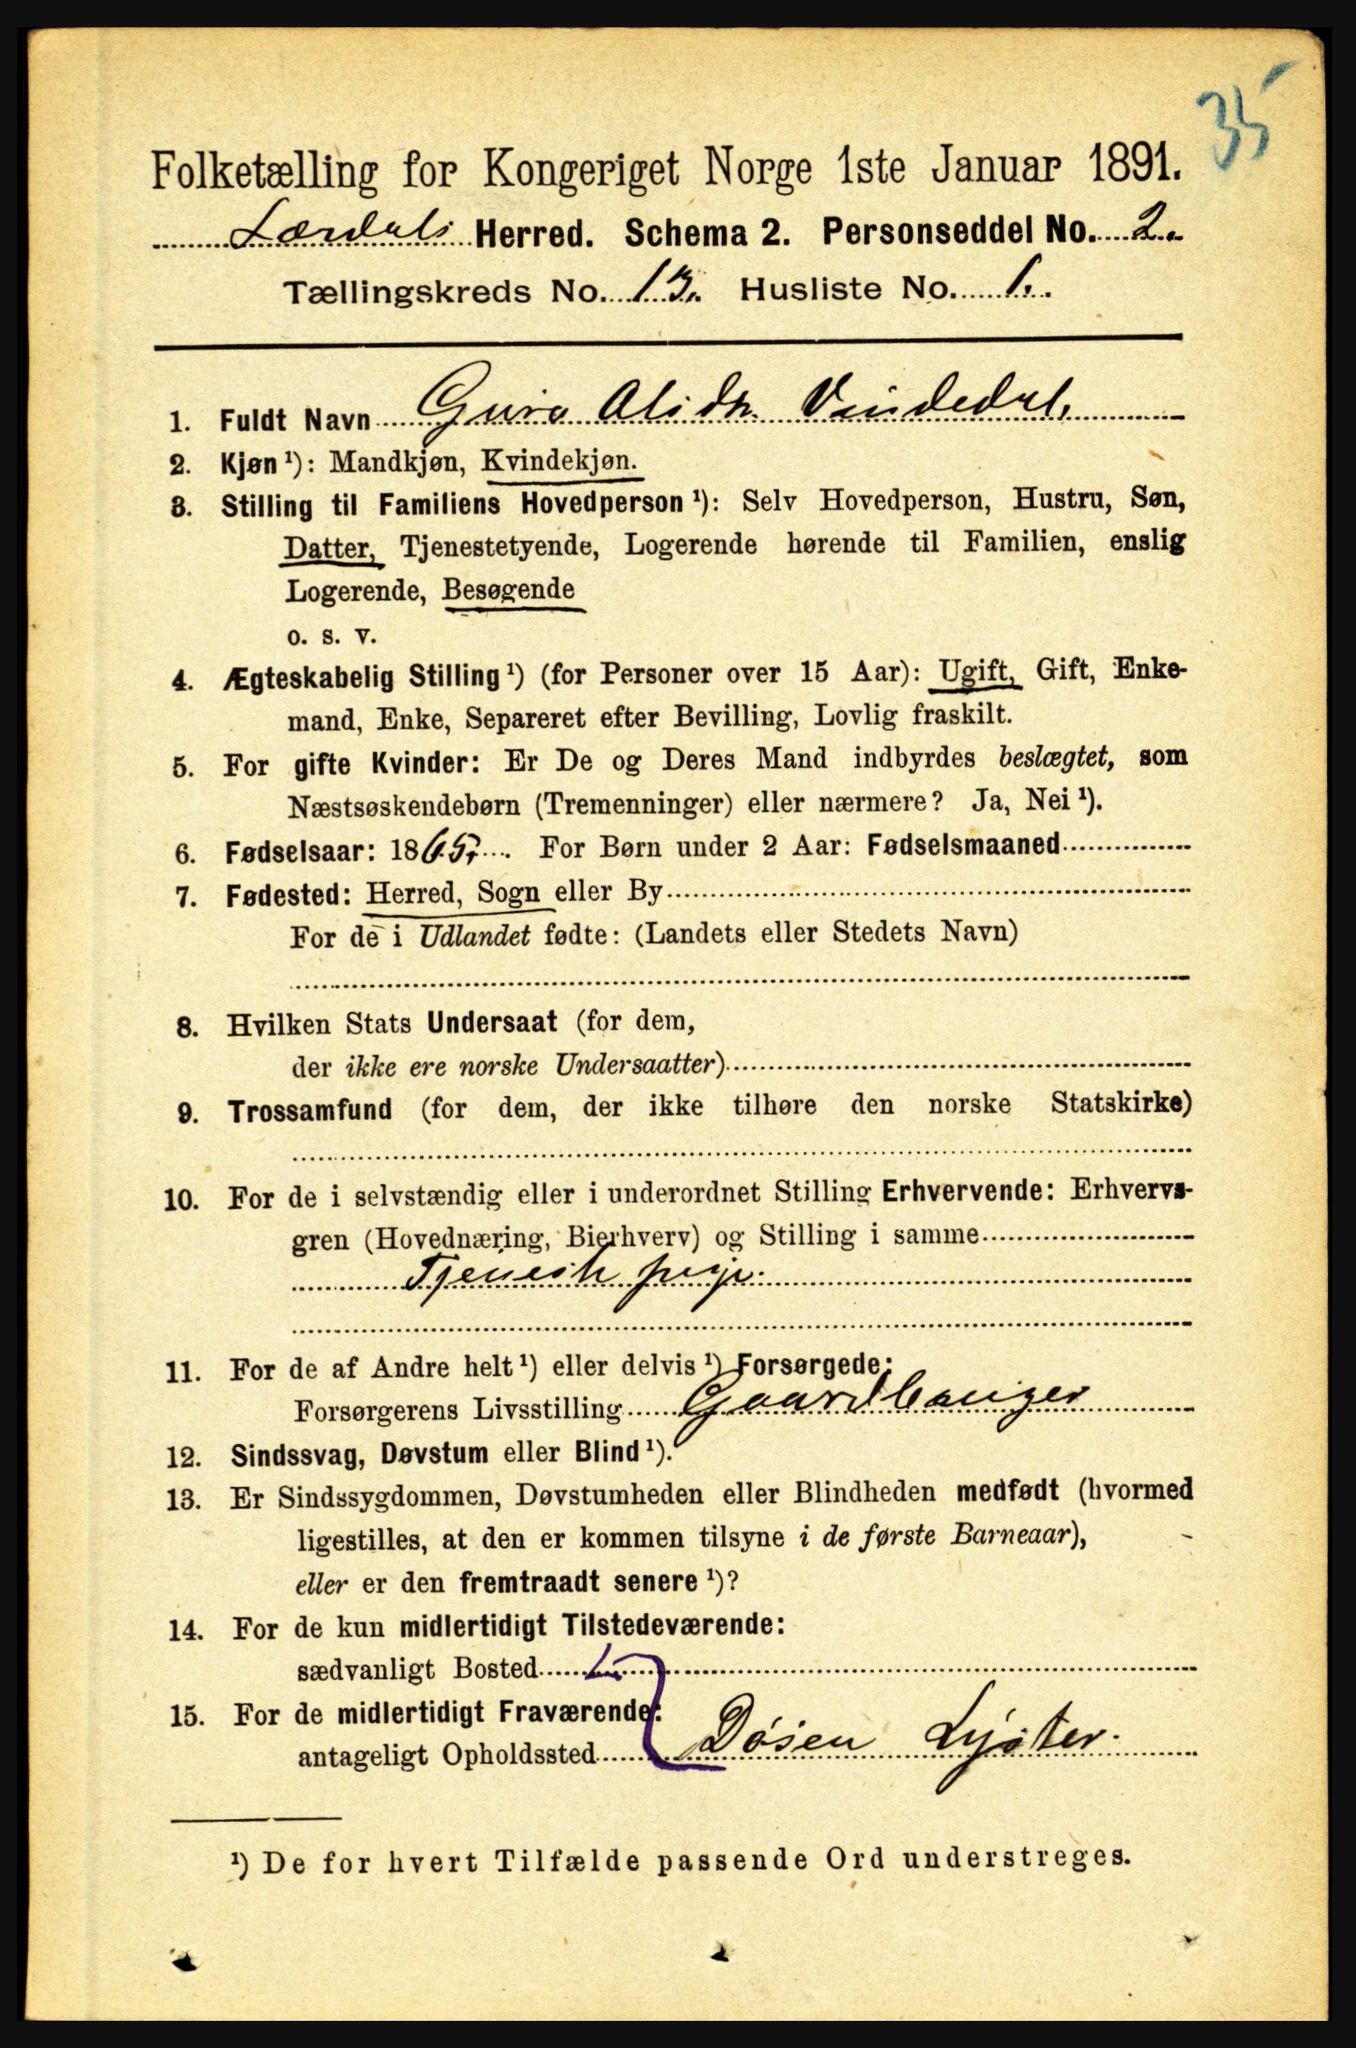 35
Folketælling for Kongeriget Norge 1ste Januar 1891.
Lærdals Herred. Schema 2. Personseddel No. 2.
Tællingskreds No. 13. Husliste No. 1.
1. Fuldt Navn Guro Olsdtr Vindedal.
2. Kjøn¹): Mandkjøn, Kvindekjøn.
3. Stilling til Familiens Hovedperson¹): Selv Hovedperson, Hustru, Søn,
Datter, Tjenestetyende, Logerende hørende til Familien, enslig
Logerende, Besøgende
o. s. v.
4. Ægteskabelig Stilling¹) (for Personer over 15 Aar): Ugift, Gift, Enke-
mand, Enke, Separeret efter Bevilling, Lovlig fraskilt.
5. For gifte Kvinder: Er De og Deres Mand indbyrdes beslægtet, som
Næstsøskendebørn (Tremenninger) eller nærmere? Ja, Nei¹).
6. Fødselsaar: 1865. For Børn under 2 Aar: Fødselsmaaned
7. Fødested: Herred, Sogn eller By
For de i Udlandet fødte: (Landets eller Stedets Navn)
8. Hvilken Stats Undersaat (for dem,
der ikke ere norske Undersaatter)
9. Trossamfund (for dem, der ikke tilhøre den norske Statskirke)
10. For de i selvstændig eller i underordnet Stilling Erhvervende: Erhvervs-
gren (Hovednæring, Bierhverv) og Stilling i samme
Tjenestepige.
11. For de af Andre helt¹) eller delvis¹) Forsørgede:
Forsørgerens Livsstilling Gaardbruger
12. Sindssvag, Døvstum eller Blind¹).
13. Er Sindssygdommen, Døvstumheden eller Blindheden medfødt (hvormed
ligestilles, at den er kommen tilsyne i de første Barneaar),
eller er den fremtraadt senere¹)?
14. For de kun midlertidigt Tilstedeværende:
sædvanligt Bosted
15. For de midlertidigt Fraværende:
antageligt Opholdssted Døsen Lyster.
¹) De for hvert Tilfælde passende Ord understreges.